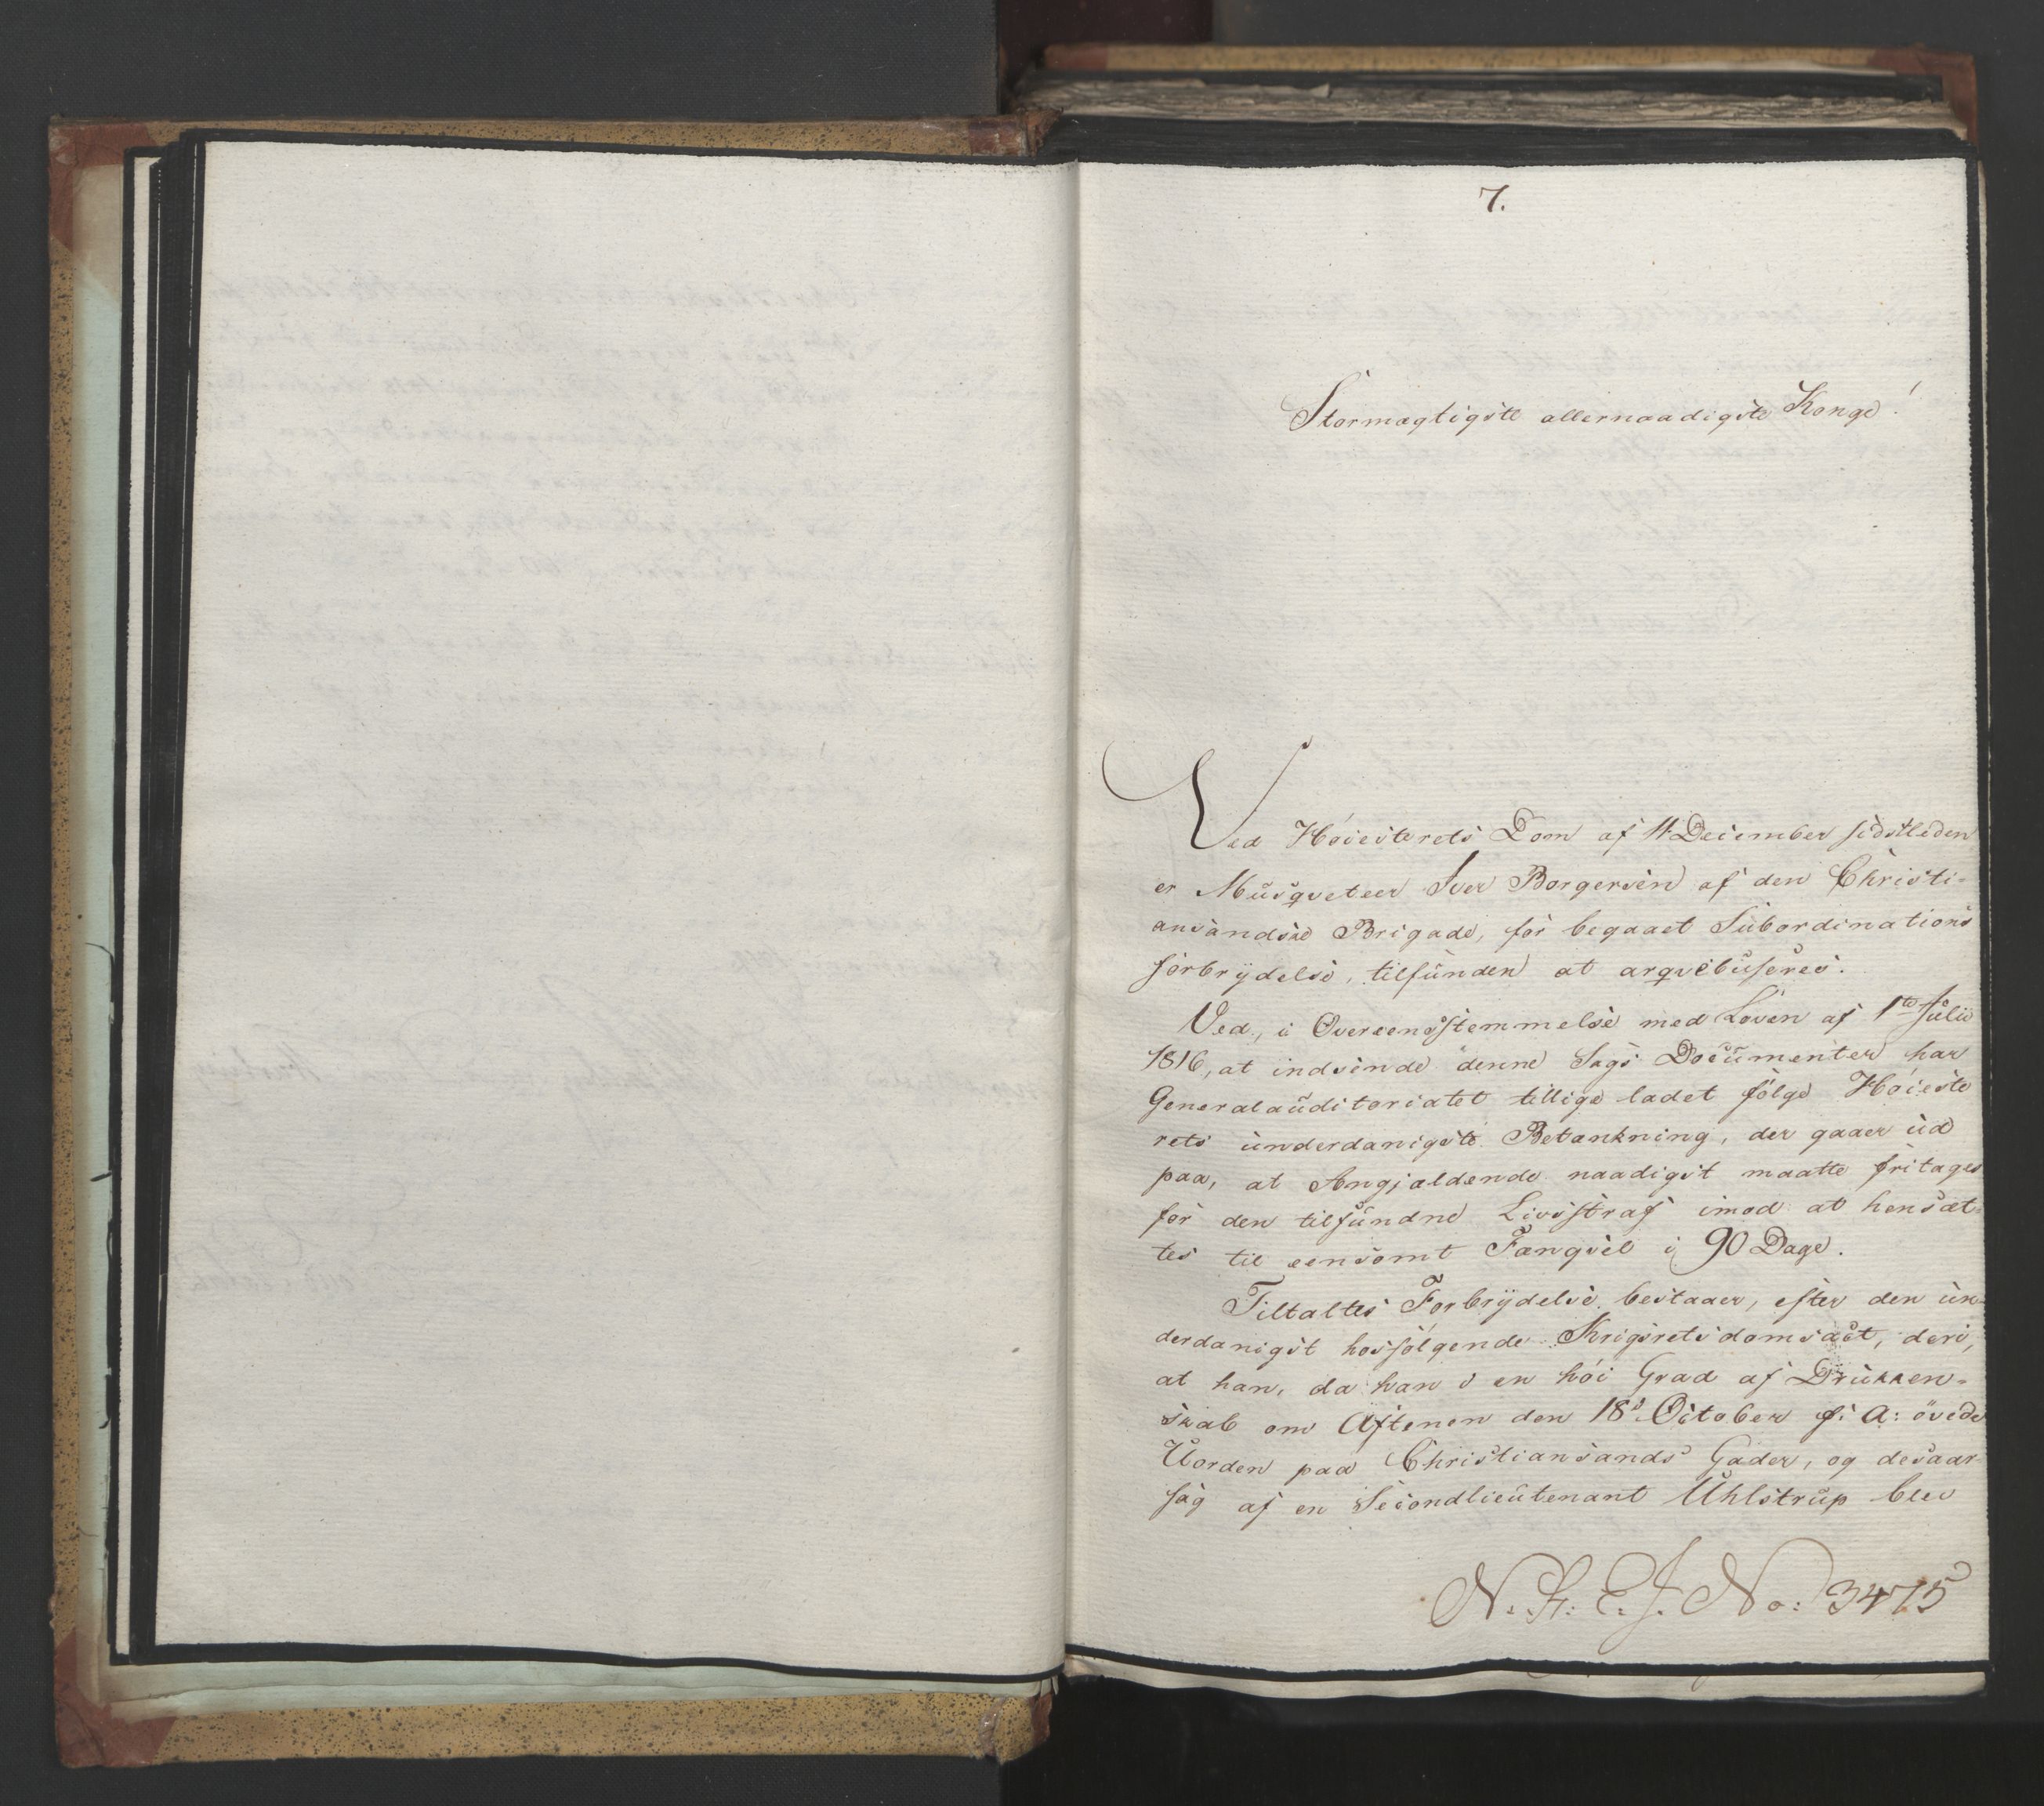 7.
Stormægtigste allernaadigste Konge!
Ved Høiesterets Dom af 11 December sidstleden
er Musqveteer Iver Borgersen af den Christi-
ansandske Brigade, for begaaet Subordinations
forbrydelse, tilfunden at arqvebuseres.
Ved, i Overeensstemmelse med Loven af 1te Julii
1816, at indsende denne Sags Documenter har
Generalauditoriatet tillige ladet følge Høieste
rets underdanigste Betænkning, der gaaer ud
paa, at Angjældende naadigst maatte fritages
for den tilfundne Livsstraf imod at hensæt-
tes til eensomt Fængsel i 90 Dage.
Tiltaltes Forbrydelse bestaaer, efter den un-
derdanigst hosfølgende Krigsretsdomsact, deri,
at han, da han i en høi Grad af Drukken-
skab om Aftenen den 18d October f: A: øvede
Uorden paa Christiansands Gader, og desaar-
sag af en Secondlieutenant Uhlstrup blev
N. H: E. J. No: 3475